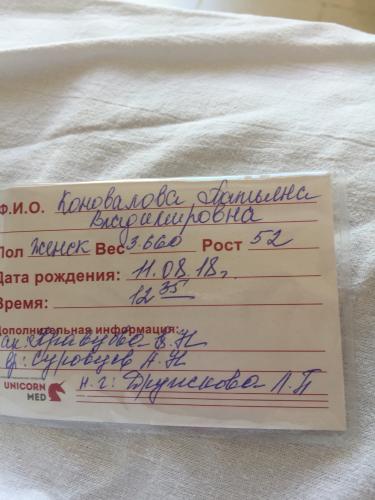 Ф.И.О. Коновалова Татьяна
Владимировна
Пол женск Вес 3.660 Рост 52
Дата рождения: 11.08.18г.
Время: 12 35
Дополнительная информация:
ак: В.Н
вр: Суровцев А.Н
UNICORN
MED
н.г: Л.П